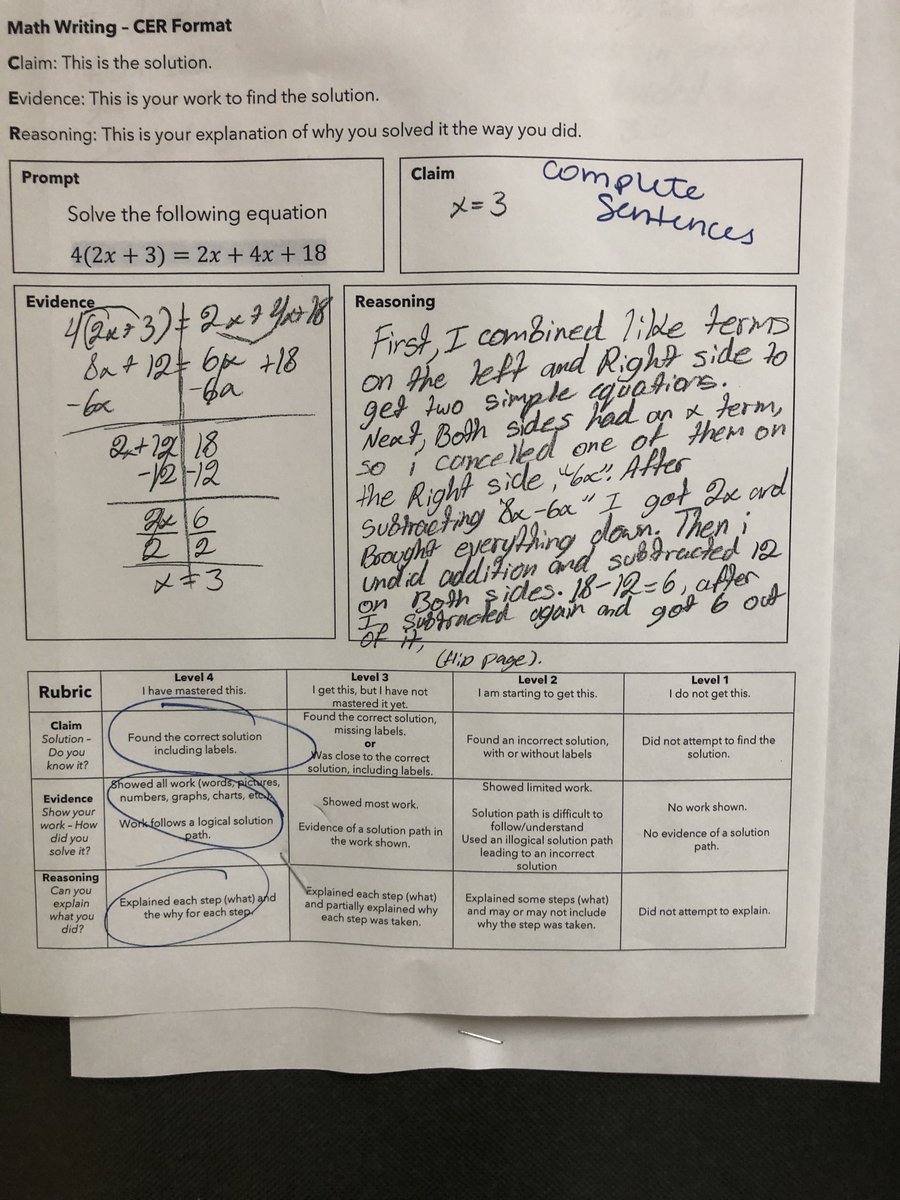 Math Writing – CER Format
Claim: This is the solution.
Evidence: This is your work to find the solution.
Reasoning: This is your explanation of why you solved it the way you did.
Prompt
Solve the following equation
4(2x + 3) = 2x + 4x + 18
Claim
x = 3
Complete
Sentences
Evidence
4(2x+3) = 2x+4x+18
8x + 12 = 6x +18
-6x -6x
2x+12 18
-12 -12
2x 6
2 2
x = 3
Reasoning
First, I combined like terms
on the left and Right side to
get two simple equations.
Next, Both sides had an x term,
so i cancelled one of them on
the Right side, "6x". After
subtracting "8x-6x" I got 2x and
Brought everything down. Then i
undid addition and subtracted 12
on Both sides. 18-12=6, after
I subtracted again and got 6 out
of it,
(flip page).
Rubric
Level 4
I have mastered this.
Level 3
I get this, but I have not
mastered it yet.
Level 2
I am starting to get this.
Level 1
I do not get this.
Claim
Solution –
Do you
know it?
Found the correct solution
including labels.
Found the correct solution,
missing labels.
or
Was close to the correct
solution, including labels.
Found an incorrect solution,
with or without labels
Did not attempt to find the
solution.
Evidence
Show your
work – How
did you
solve it?
Showed all work (words, pictures,
numbers, graphs, charts, etc.)
Work follows a logical solution
path.
Showed most work.
Evidence of a solution path in
the work shown.
Showed limited work.
Solution path is difficult to
follow/understand
Used an illogical solution path
leading to an incorrect
solution
No work shown.
No evidence of a solution
path.
Reasoning
Can you
explain
what you
did?
Explained each step (what) and
the why for each step.
Explained each step (what)
and partially explained why
each step was taken.
Explained some steps (what)
and may or may not include
why the step was taken.
Did not attempt to explain.